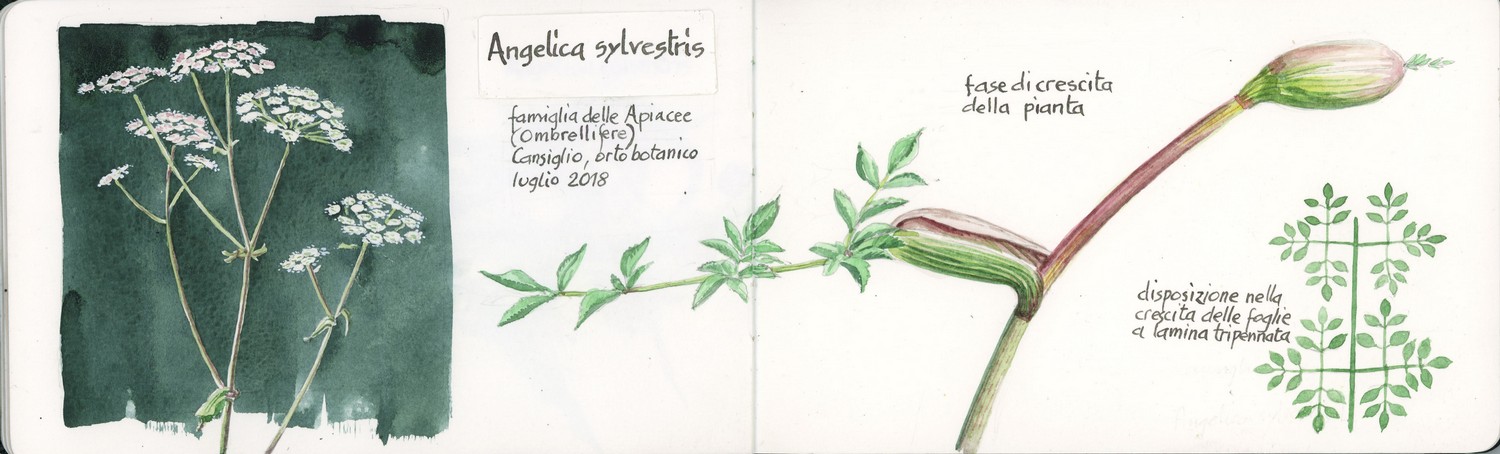 Angelica sylvestris
famiglia delle Apiacee
(Ombrellifere)
Cansiglio, orto botanico
luglio 2018
fase di crescita
della pianta
disposizione nella
crescita delle foglie
a lamina tripennata